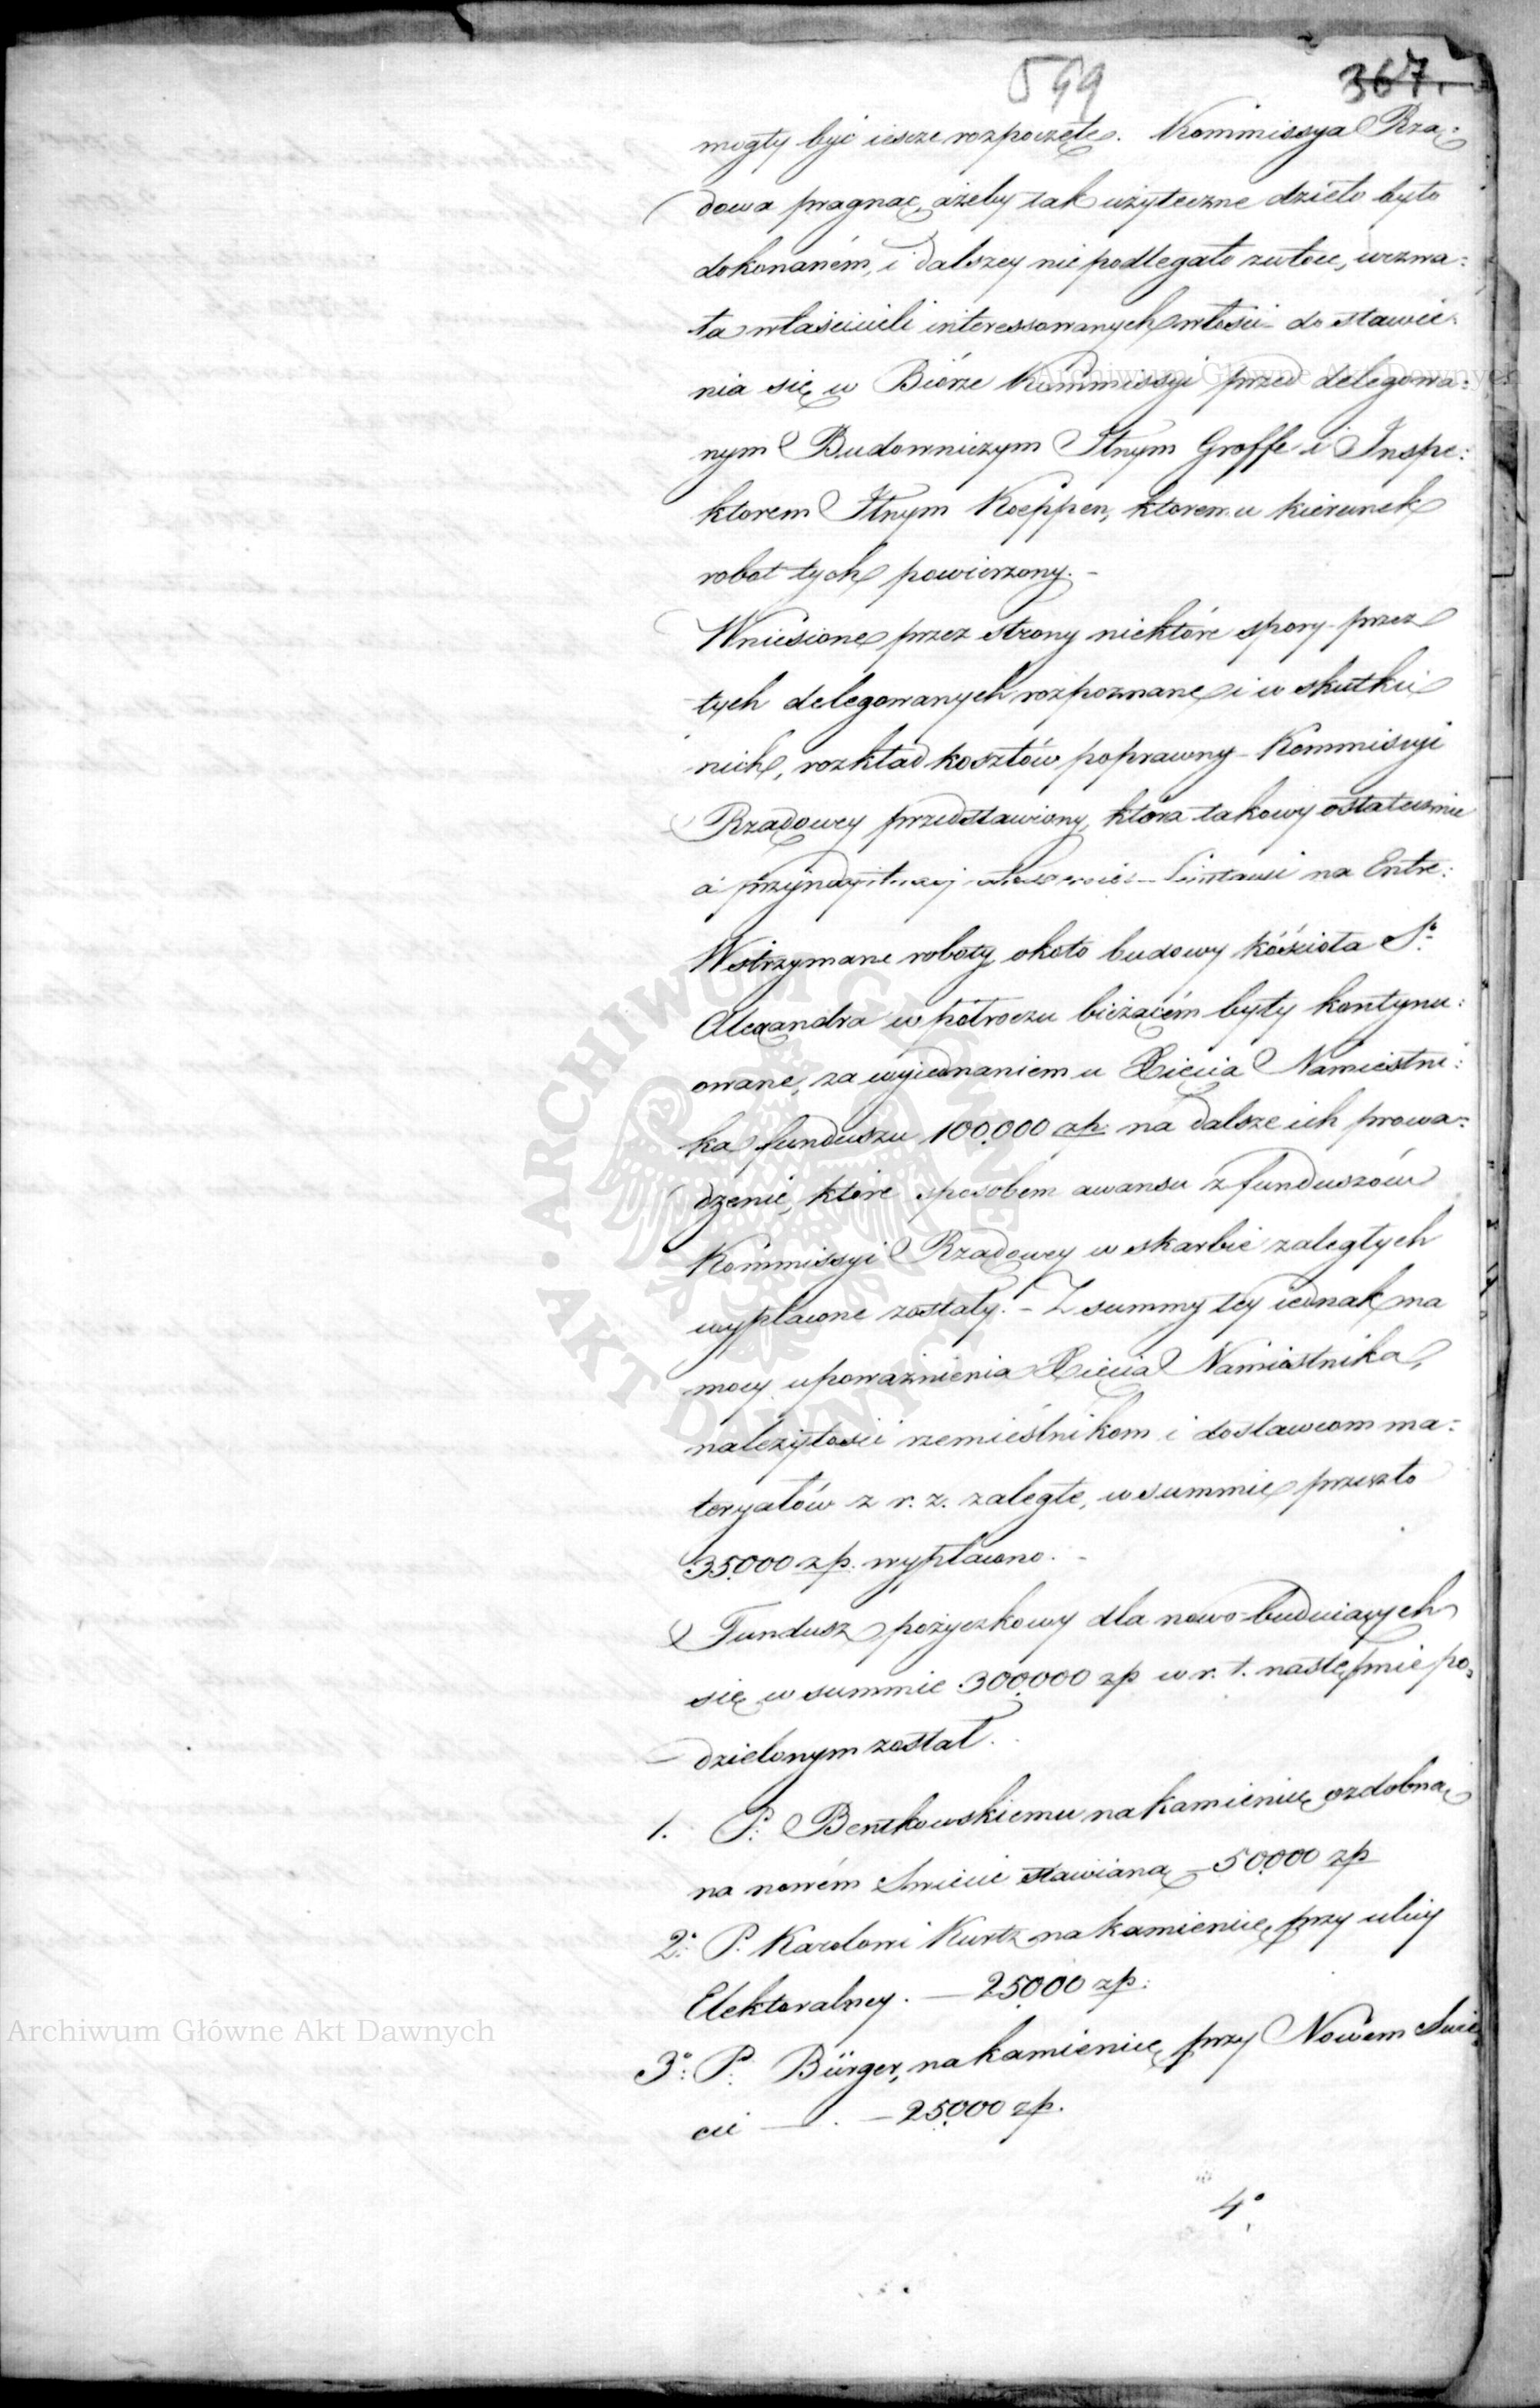 599
367.
mogły być ieszcze rozpoczęte. Kommissya Rzą:
dowa pragnąc, ażeby tak użyteczne dzieło było
dokonaném, i dalszey nie podlegało zwłoce, wezwa:
ła właścicieli interessowanych włości do stawie:
nia się w Biórze Kommissyi przed delegowa:
nym Budowniczym Jlnym Groffe i Inspe:
ktorem Jlnym Koeppen, ktoremu kierunek
robot tych powierzony. -
Wniesione przez strony niektóre spory przez
tych delegowanych rozpoznane i w skutku
nich, rozkład kosztów poprawny Kommissyi
Rządowey przedstawiony, która takowy ostatecznie
na Entre:
Wstrzymane roboty około budowy kościoła Sº
Alexandra w półroczu bieżącém były kontynu:
owane, za wyiednaniem u Xięcia Namiestni:
ka funduszu 100,000 zp: na dalsze ich prowa:
dzenie, które sposobem awansu z funduszów
Kommissyi Rządowey w skarbie zaległych
wypłacone zostały. - Z summy tey iednak na
mocy upoważnienia Xięcia Namiestnika,
należytości rzemieślnikom i dostawcom ma:
teryałów z r. z. zaległe, w summie przeszło
35,000 zp. wypłacono. -
Fundusz pożyczkowy dla nowo-buduiących
się w summie 300,000 zp w r. t. następnie po:
dzielonym został.
1. P: Bentkowskiemu na kamienicę ozdobną
na nowém Swiecie stawianą - 50,000 zp
2º: P. Karolowi Kurtz na kamienicę przy ulicy
Elektoralney. — 25,000 zp:
3º: P: Bürger, na kamienicę przy Nowem Swie
cie — . — 25,000 zp.
4º
Archiwum Główne Akt Dawnych
Archiwum Główne Akt Dawnych
ARCHIWUM GŁÓWNE AKT DAWNYCH